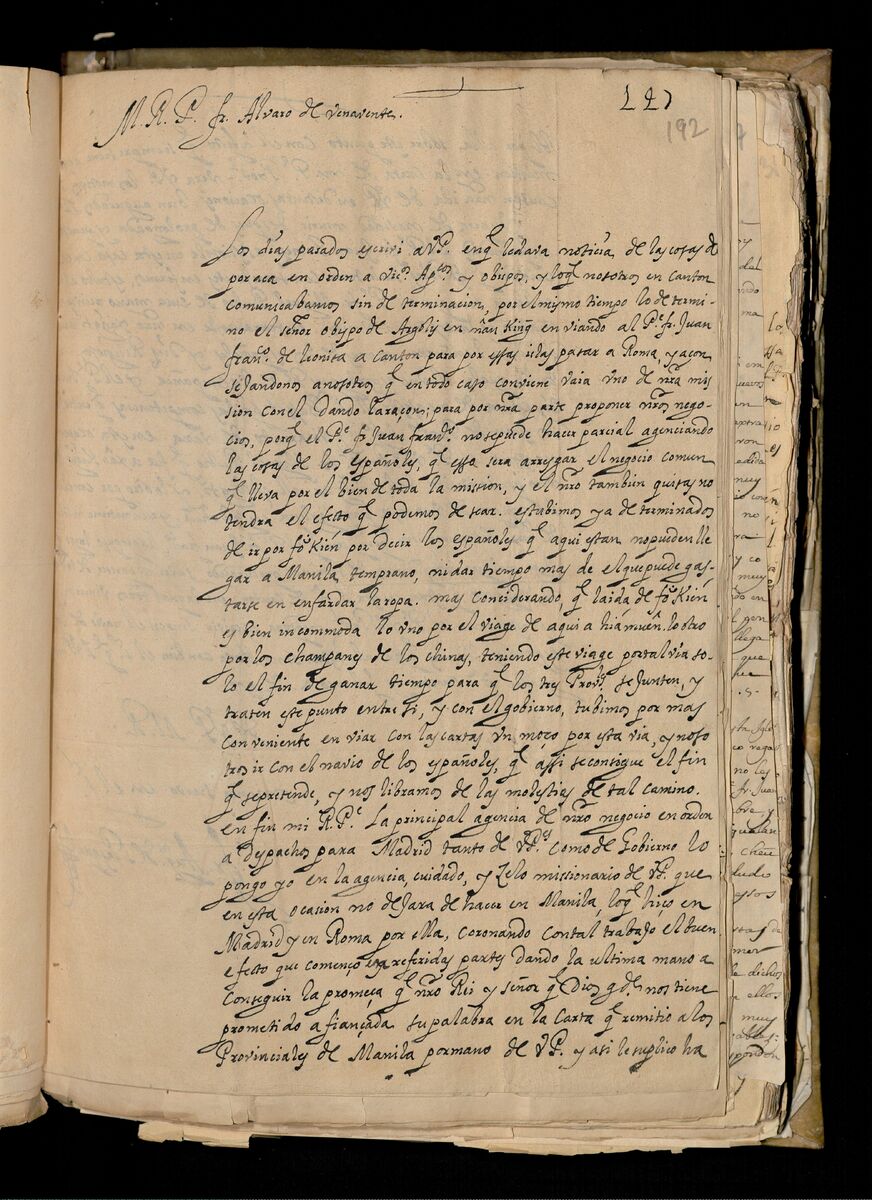 147
192
M. R. P. fr. Alvaro de Venavente.
Los días pasados escrivi a VP. en q̃ le dava noticia de las cosas de
por aca en orden a Vic.s Ap.cos y obispos, y lo q̃ nosotros en Canton
comunicabamos sin determinacion, por el mismo tiempo lo determi-
no el señor obispo de Argolis en nan King enviando al P.e fr. Juan
fran.co de leonisa a Canton para por essas islas pasar a Roma, y acon
sejandonos a nosotros q̃ en todo caso conviene vaia vno de nr̃a mis
sion con el dando la raçon; para por nr̃a parte proponer nr̃os nego-
cios, porq̃ el P.e fr Juan fran.co no se puede hacer parcial agenciando
las cosas de los españoles, q̃ esso sera arresgar el negocio comun
q̃ lleva por el bien de toda la mission, y el nr̃o tambien quisas no
tendra el efecto q̃ podemos desear. estubimos ya determinados
de ir por fo Kien por decir los españoles q̃ aqui estan no pueden lle
gar a Manila temprano, ni dar tiempo mas de el que puede gas-
tarse en enfardar la ropa. mas considerando q̃ la ida de fo Kien
es bien incommoda lo vno por el viage de aqui a hiámuen. lo otro
por los champanes de los chinas, teniendo este viage por tal via so-
lo el fin de ganar tiempo para q̃ los tres Prov.s se junten, y
traten este punto entre si, y con el gobierno, tubimos por mas
conveniente enviar con las cartas vn moço por esta via, y noso
tros ir con el navio de los españoles, q̃ assi se consigue el fin
q̃ se pretende, y nos libramos de las molestias de tal camino.
en fin mi R. P.e La principal agencia de nr̃o negocio en orden
a despachos para Madrid tanto de VP.es como de Gobierno lo
pongo yo en la agencia, cuidado, y zelo missionario de VP. que
en esta ocasion no dejara de hacer en Manila, lo q̃ hiço en
Madrid y en Roma por ella, coronando con tal trabajo el buen
efecto que començo en las referidas partes dando la ultima mano a
conseguir la promeça q̃ nr̃o Rei y señor q̃ Dios g.de nos tiene
prometido afiançada su palabra en la carta q̃ remitio a los
Provinciales de Manila por mano de VP. y asi le suplico ha